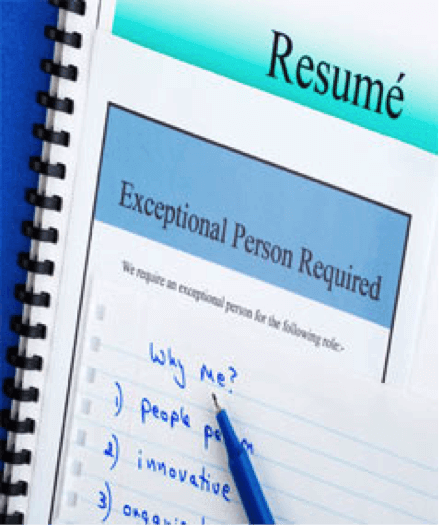 Resumé
Exceptional Person Required
We require an exceptional person for the following role:-
Why Me?
1) people
2) innovative
3)